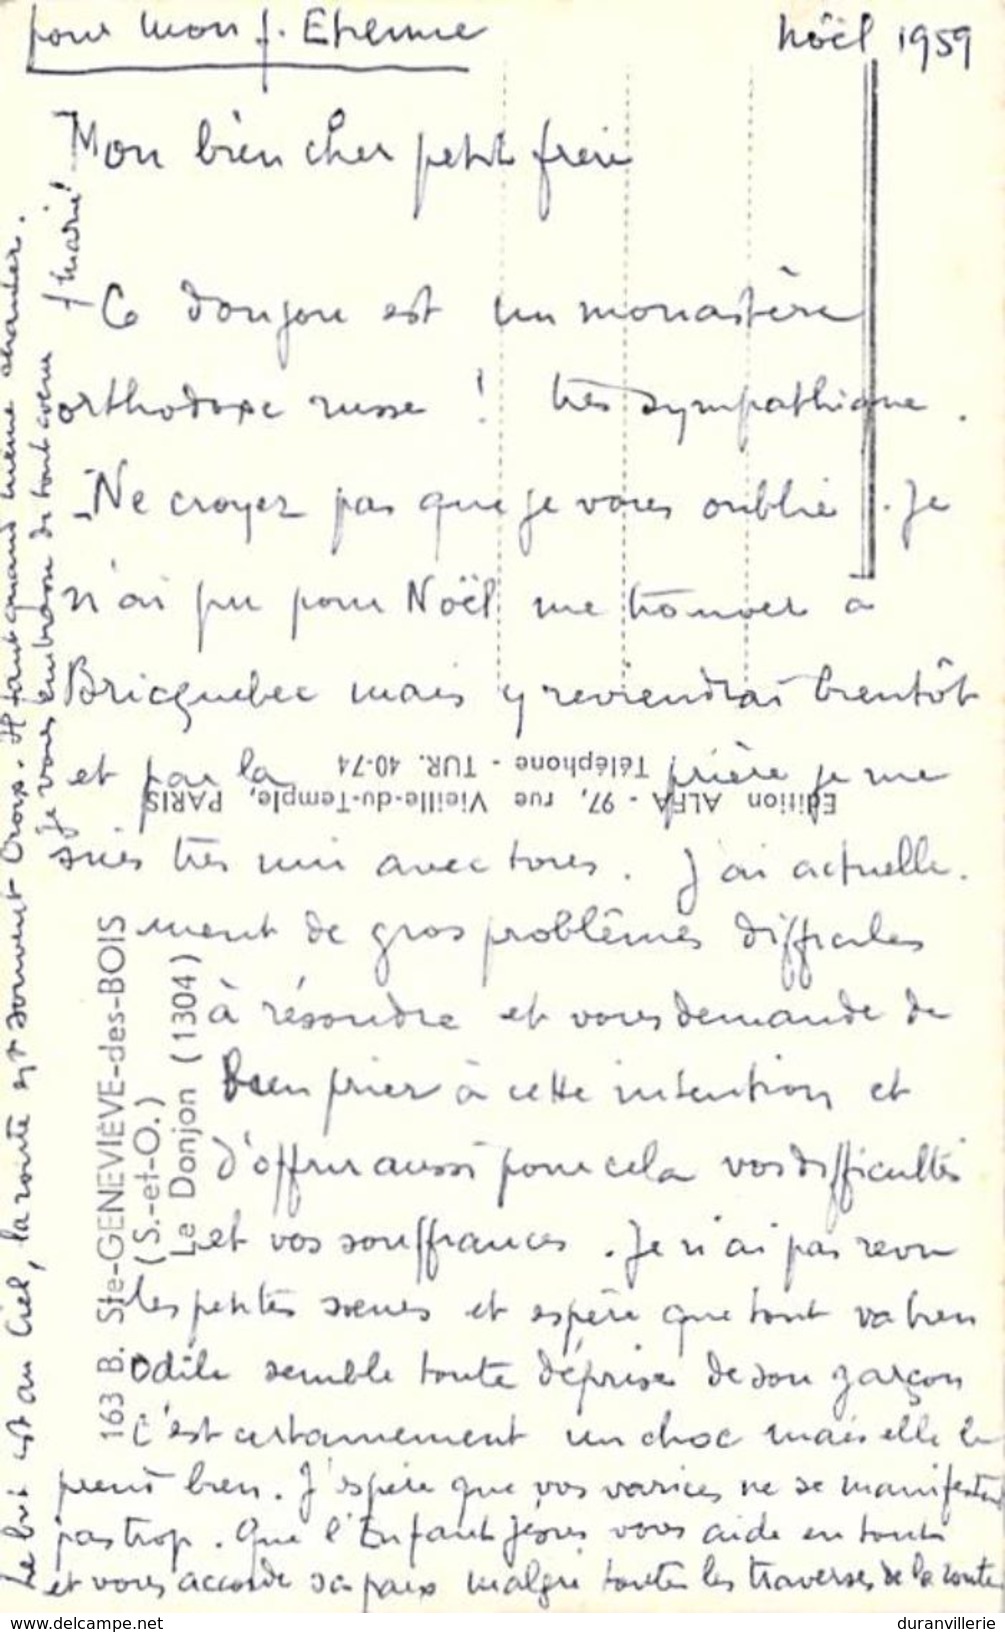 pour mon f. Etienne
Noël 1959
Mon bien cher petit frère
Ce donjon est un monastère
orthodoxe russe ! très sympathique.
- Ne croyez pas que je vous oublie. Je
n'ai pu pour Noël me trouver à
Bricquebec mais y reviendrai bientôt
et par la prière je me
suis très uni avec vous. J'ai actuelle-
ment de gros problèmes difficiles
à résoudre et vous demande de
bien prier à cette intention et
d'offrir aussi pour cela vos difficultés
et vos souffrances. Je n'ai pas revu
les petites sœurs et espère que tout va bien
Odile semble toute éprise de son garçon
c'est certainement un choc mais elle le
prend bien. J'espère que vos varices ne se manifestent
pas trop. Que l'Enfant Jésus vous aide en tout
et vous accorde sa paix malgré toutes les traverses de la route
Le but est au Ciel, la route est souvent Croix. Il faut quand même chanter.
Je vous embrasse de tout cœur
f Marie
Edition ALFA - 97, rue Vieille-du-Temple, PARIS
Téléphone - TUR. 40-74
163 B. Ste-GENEVIÈVE-des-BOIS
(S.-et-O.)
Le Donjon (1304)
www.delcampe.net
duranvillerie